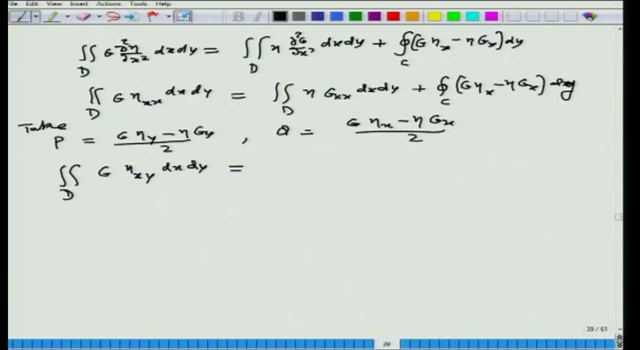 File Edit View Insert Actions Tools Help
∬_D G ∂²η/∂x² dx dy = ∬_D η ∂²G/∂x² dx dy + ∮_C (G η_x − η G_x) dy
∬_D G η_xx dx dy = ∬_D η G_xx dx dy + ∮_C (G η_x − η G_x) dy
Take P = (G η_y − η G_y)/2 , Q = (G η_x − η G_x)/2
∬_D G η_xy dx dy =
39